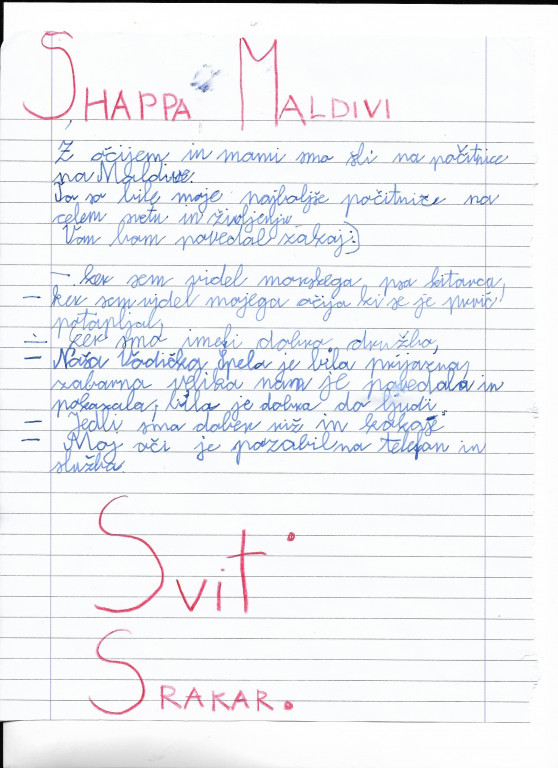 SHAPPA MALDIVI
Z očijem in mami smo šli na počitnice
na Maldive.
To so bile moje najboljše počitnice na
celem svetu in življenju
Vam bom povedal zakaj:)
- ker sem videl morskega psa kitovca,
- ker sem videl mojega očija ki se je prvič
potapljal,
- ker smo imeli dobro družbo,
- Naša Vodička Špela je bila prijazna,
zabavna velika nam je povedala in
pokazala, bila je dobra do ljudi
- Jedli smo dober riž in kokoši
- Moj oči je pozabil na telefon in
službo
Svit
SRAKAR.